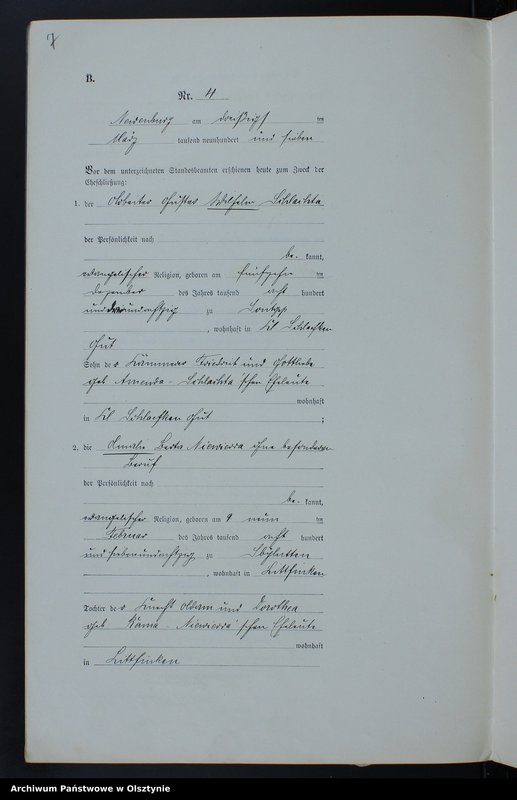 7
B.
Nr. 4
Neidenburg am dreißigsten
März tausend neunhundert und sieben
Vor dem unterzeichneten Standesbeamten erschienen heute zum Zweck der
Eheschließung:
1. der Arbeiter Gustav Wilhelm Schlachta
der Persönlichkeit nach
be kannt,
evangelischer Religion, geboren am fünfzehnten
Dezember des Jahres tausend acht hundert
achtzig zu
, wohnhaft in Kl Schlaefken
Gut
Sohn des Kämmerer Friedrich und Gottliebe
geb Schlachta'schen Eheleute
wohnhaft
in Kl Schlaefken Gut ;
2. die Amalie Berta Niewierra ohne besonderen
Beruf
der Persönlichkeit nach
be- kannt,
evangelischer Religion, geboren am 9 neunten
Februar des Jahres tausend acht hundert
und siebenundachtzig zu
, wohnhaft in Littfinken
Tochter des Knecht Adam und Dorothea
geb Niewierra'schen Eheleute
wohnhaft
in Littfinken
Archiwum Państwowe w Olsztynie